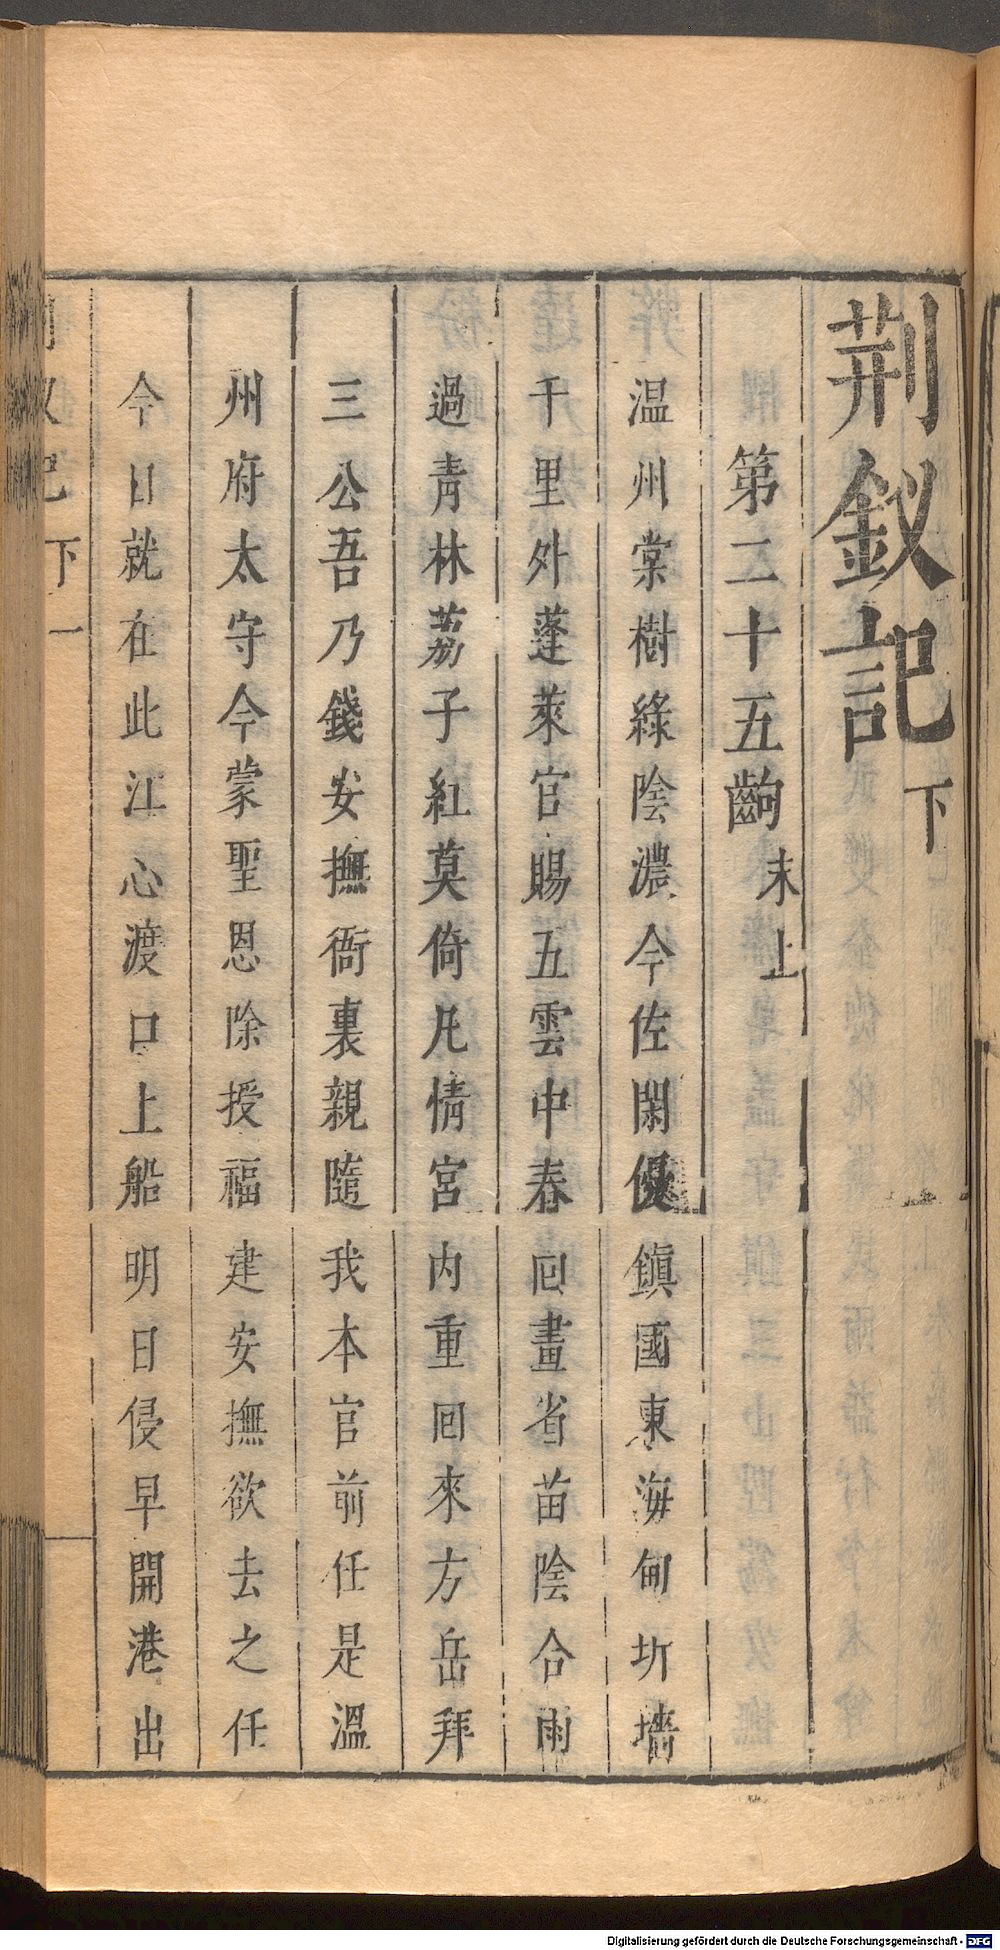 荆釵記下
第二十五齣末上
温州棠樹綠陰濃今佐閑優鎮國東海甸圻墻
千里外蓬萊官賜五雲中春囘畫省苗陰合雨
過靑林荔子紅莫倚凡情宮内重回來方岳拜
三公吾乃錢安撫衙裏親隨我本官前任是溫
州府太守今蒙聖恩除授福建安撫欲去之任
今日就在此江心渡口上船明日侵早開港出
下 一
Digitalisierung gefördert durch die Deutsche Forschungsgemeinschaft - DFG